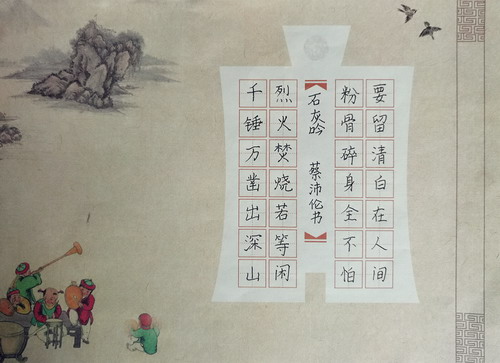 千锤万凿出深山
烈火焚烧若等闲
石灰吟 蔡沛伦书
粉骨碎身全不怕
要留清白在人间